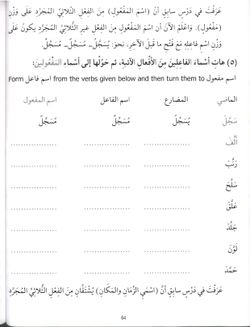 عَرَفْتَ فِي دَرْسٍ سَابِقٍ أَنَّ (اسْمَ الْمَفْعُولِ) مِنَ الْفِعْلِ الثُّلَاثِيِّ الْمُجَرَّدِ عَلَى وَزْنِ
(مَفْعُولٍ). وَاعْلَمِ الْآنَ أَنَّ اسْمَ الْمَفْعُولِ مِنَ الْفِعْلِ غَيْرِ الثُّلَاثِيِّ الْمُجَرَّدِ يَكُونُ عَلَى
وَزْنِ اسْمِ فَاعِلِهِ مَعَ فَتْحِ مَا قَبْلَ الْآخِرِ، نحوَ: يُسَجِّلُ ـ مُسَجِّلٌ ـ مُسَجَّلٌ.
(٥) هَاتِ أَسْمَاءَ الْفَاعِلِينَ مِنَ الْأَفْعَالِ الْآتِيَةِ، ثم حَوِّلْهَا إِلَى أَسْمَاءِ الْمَفْعُولِينَ:
Form اسم فاعل from the verbs given below and then turn them to اسم مفعول
الماضي المضارع اسم الفاعل اسم المفعول
سَجَّلَ يُسَجِّلُ مُسَجِّلٌ مُسَجَّلٌ
أَلَّفَ
رَتَّبَ
سَلَّحَ
عَلَّقَ
جَلَّدَ
لَوَّنَ
حَمَّدَ
عَرَفْتَ فِي دَرْسٍ سَابِقٍ أَنَّ (اسْمَيِ الزَّمَانِ وَالْمَكَانِ) يُشْتَقَّانِ مِنَ الْفِعْلِ الثُّلَاثِيِّ الْمُجَرَّدِ
64